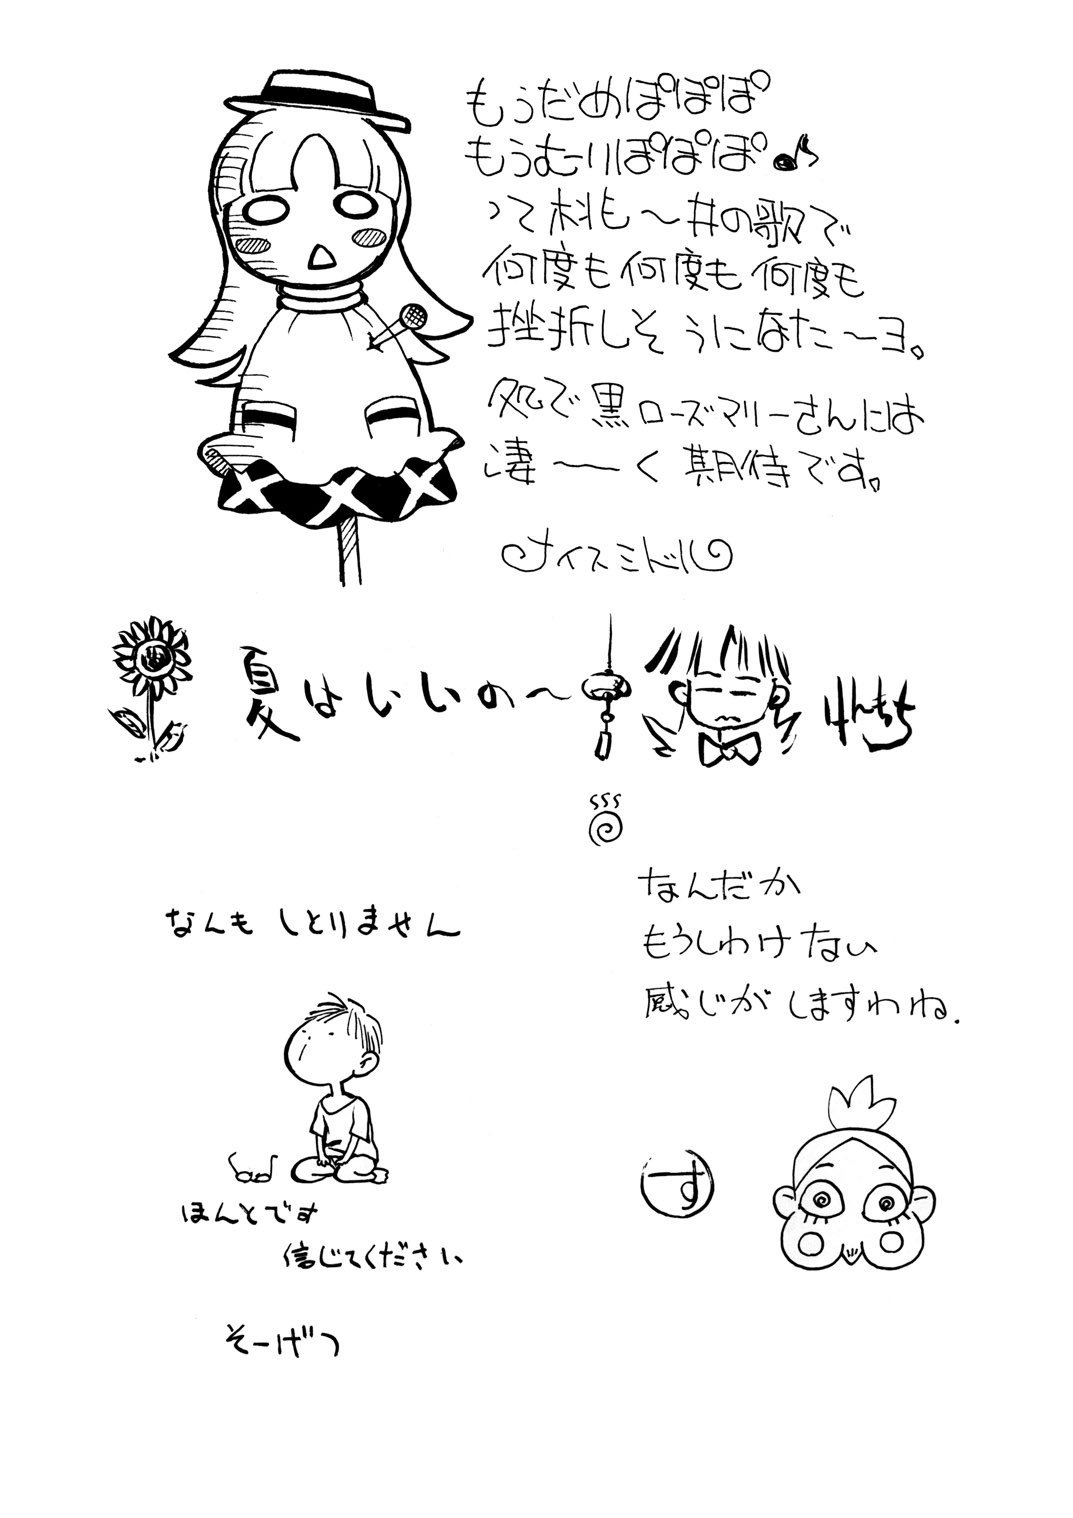 もうだめぽぽぽ
もうむーりぽぽぽ♪
って木村も〜井の歌で
何度も何度も何度も
挫折しそうになた〜ヨ。
処で黒ローズマリーさんには
凄〜〜く期待です。
ナイスミドル
夏はいいの〜
けんもち
なんだか
もうしわけない
感じがしますわね.
す
なんもしとりません
ほんとです
信じてください
そーげつ